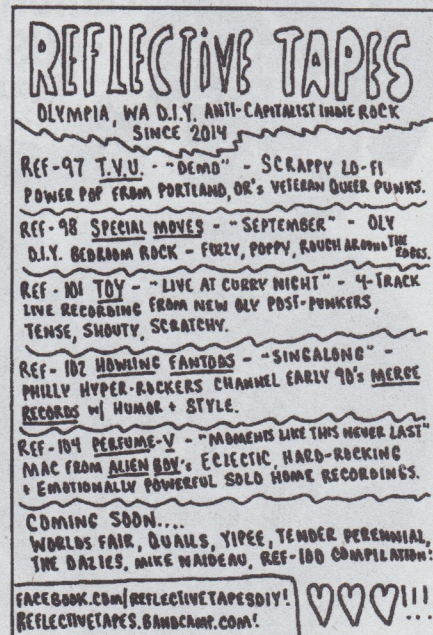 REFLECTIVE TAPES
OLYMPIA, WA D.I.Y. ANTI-CAPITALIST INDIE ROCK
SINCE 2014
REF-97 T.V.U. - "DEMO" - SCRAPPY LO-FI
POWER POP FROM PORTLAND, OR'S VETERAN QUEER PUNKS.
REF-98 SPECIAL MOVES - "SEPTEMBER" - OLY
D.I.Y. BEDROOM ROCK - FUZZY, POPPY, ROUGH AROUND THE EDGES.
REF-101 TOY - "LIVE AT CURRY NIGHT" - 4-TRACK
LIVE RECORDING FROM NEW OLY POST-PUNKERS,
TENSE, SHOUTY, SCRATCHY.
REF-102 HOWLING FANTODS - "SINGALONG" -
PHILLY HYPER-ROCKERS CHANNEL EARLY 90'S MERGE
RECORDS W/ HUMOR + STYLE.
REF-104 PERFUME-V - "MOMENTS LIKE THIS NEVER LAST"
MAC FROM ALIEN BOY'S ECLECTIC, HARD-ROCKING
+ EMOTIONALLY POWERFUL SOLO HOME RECORDINGS.
COMING SOON....
WORLDS FAIR, QUAILS, YIPEE, TENDER PERENNIAL,
THE DAZIES, MIKE NAIDEAU, REF-100 COMPILATION!
FACEBOOK.COM/REFLECTIVETAPESDIY!
REFLECTIVETAPES.BANDCAMP.COM!
!!!